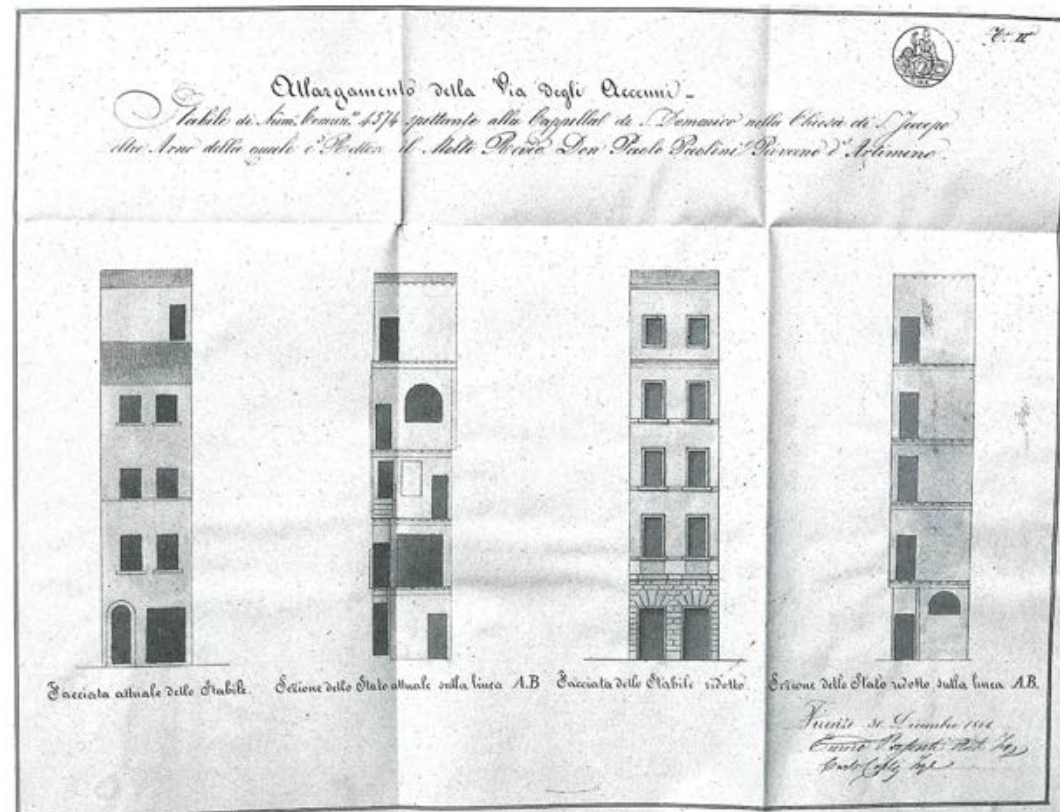 Allargamento della Via degli Accenni -
Stabile di Num. Comun. 4574 spettante alla Cappella di S. Domenico nella Chiesa di S. Jacopo
oltre Arno della quale è Rettore il Molto Revdo Don Paolo Paolini Pievano d' Artimino.
Facciata attuale dello Stabile.
Sezione dello Stato attuale sulla linea A.B
Facciata dello Stabile ridotto.
Sezione dello Stato ridotto sulla linea A.B.
Firenze 31. Dicembre